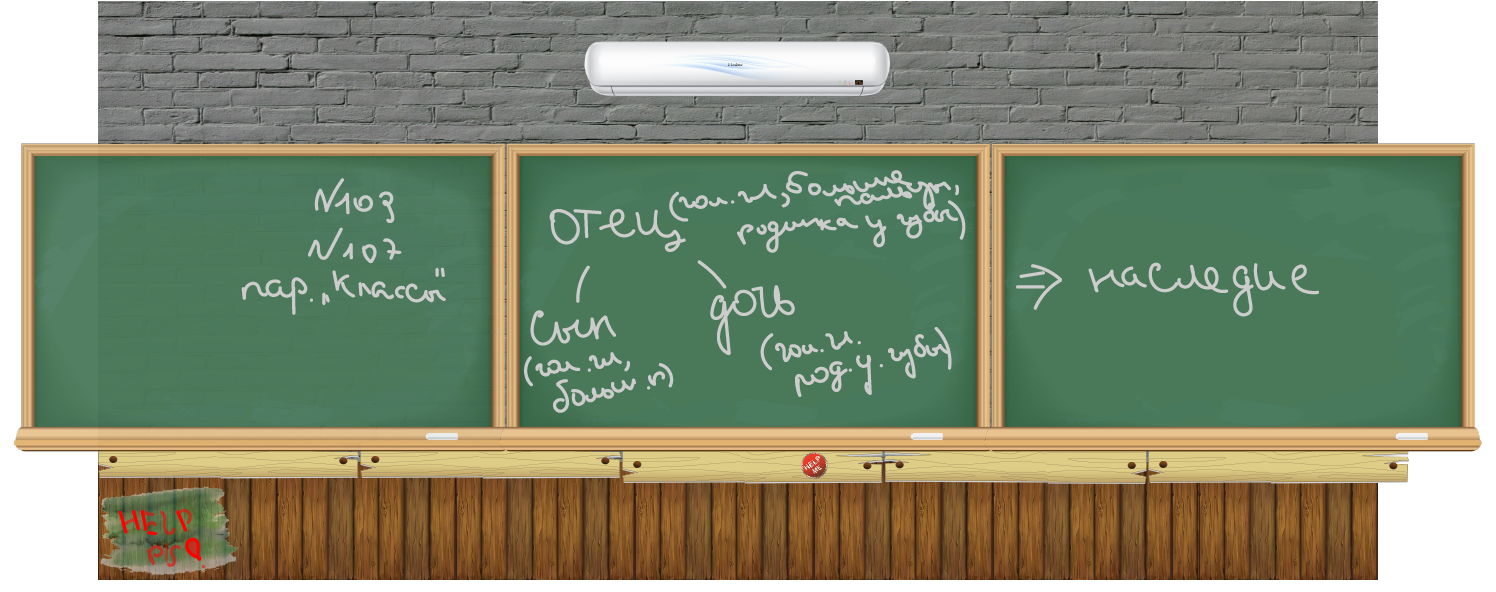 N103
N107
пар. „Классы"
отец (гол. гл, большие
пальцы,
родинка у губы)
сын
(гол. гл,
больш. п)
дочь
(гол. гл.
род. у. губы)
⇒ наследие
HELP
ME
HELP
pls!